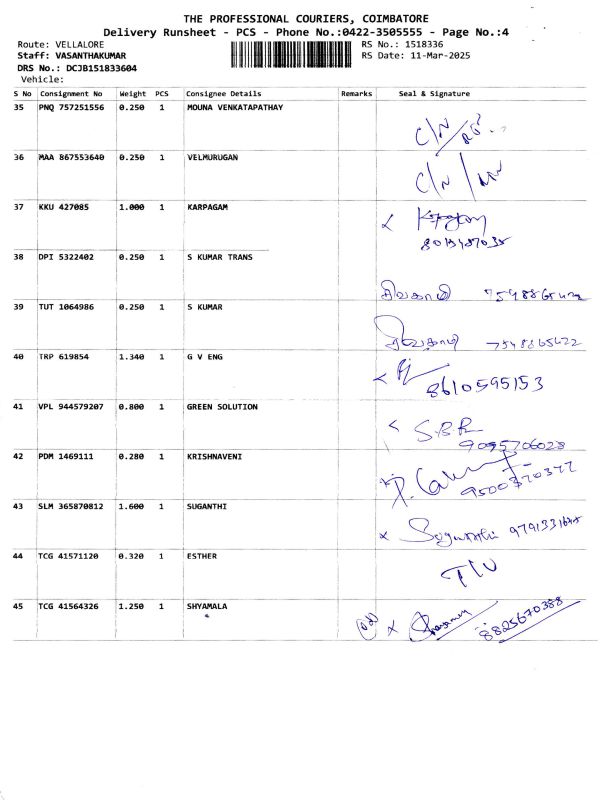 THE PROFESSIONAL COURIERS, COIMBATORE
Delivery Runsheet - PCS - Phone No.:0422-3505555 - Page No.:4
Route: VELLALORE RS No.: 1518336
Staff: VASANTHAKUMAR RS Date: 11-Mar-2025
DRS No.: DCJB151833604
Vehicle:
S No Consignment No Weight PCS Consignee Details Remarks Seal & Signature
35 PNQ 757251556 0.250 1 MOUNA VENKATAPATHAY
C/N
36 MAA 867553640 0.250 1 VELMURUGAN
C/N
37 KKU 427085 1.000 1 KARPAGAM
38 DPI 5322402 0.250 1 S KUMAR TRANS
சிவகாமி
39 TUT 1064986 0.250 1 S KUMAR
சிவகாமி 7548865622
40 TRP 619854 1.340 1 G V ENG
8610595153
41 VPL 944579207 0.800 1 GREEN SOLUTION
S.B.R
9095706028
42 PDM 1469111 0.280 1 KRISHNAVENI
9500370377
43 SLM 365870812 1.600 1 SUGANTHI
44 TCG 41571120 0.320 1 ESTHER
45 TCG 41564326 1.250 1 SHYAMALA
8825670388